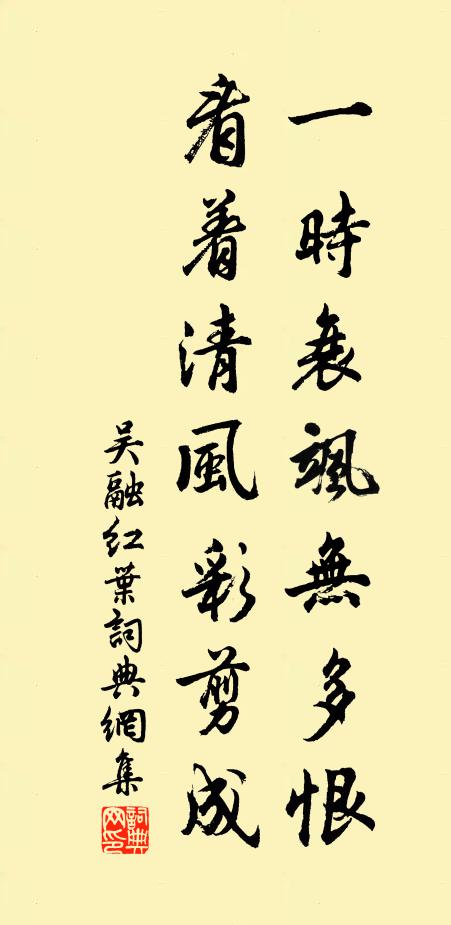 一時衰颯無多恨
看着清風彩剪成
吴融紅葉詞典網集
詞典网印